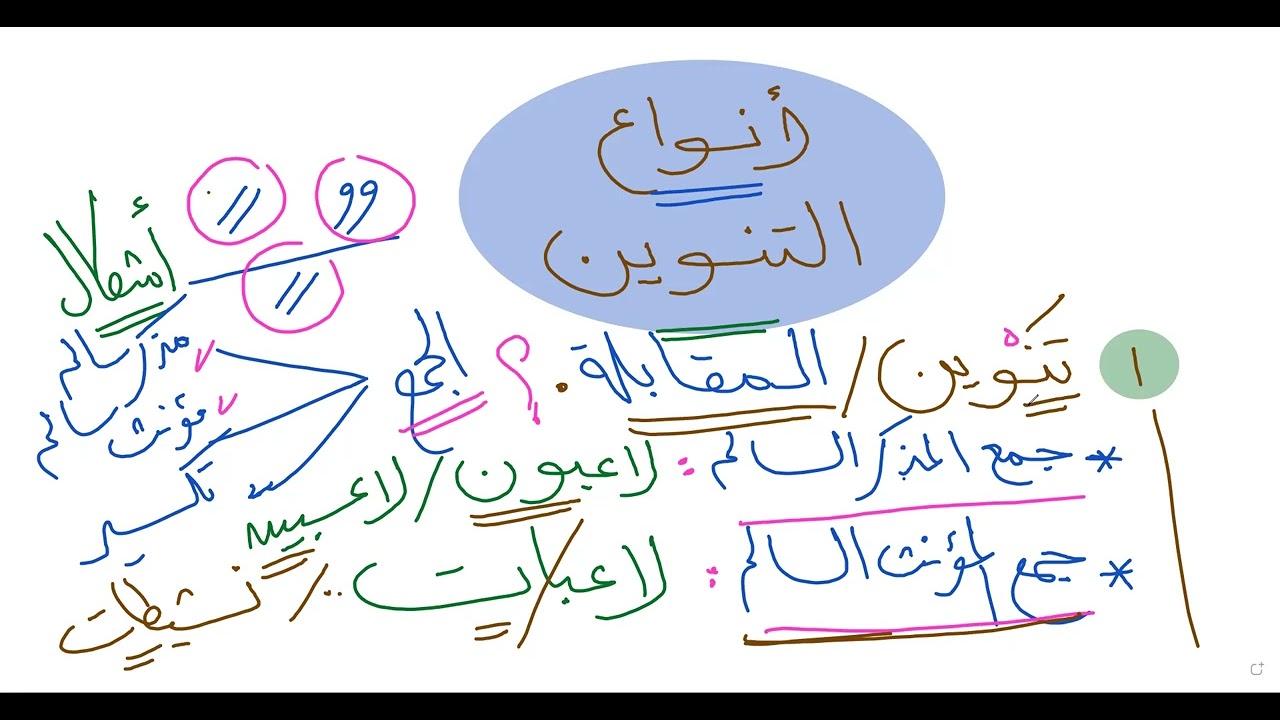 أنواع
التنوين
أشكال
١ تنوين / المقابلة . ؟ الجمع
مذكر سالم
مؤنث سالم
تكسير
* جمع المذكر السالم : لاعبون / لاعبين
* جمع المؤنث السالم : لاعبات .. / نشيطات